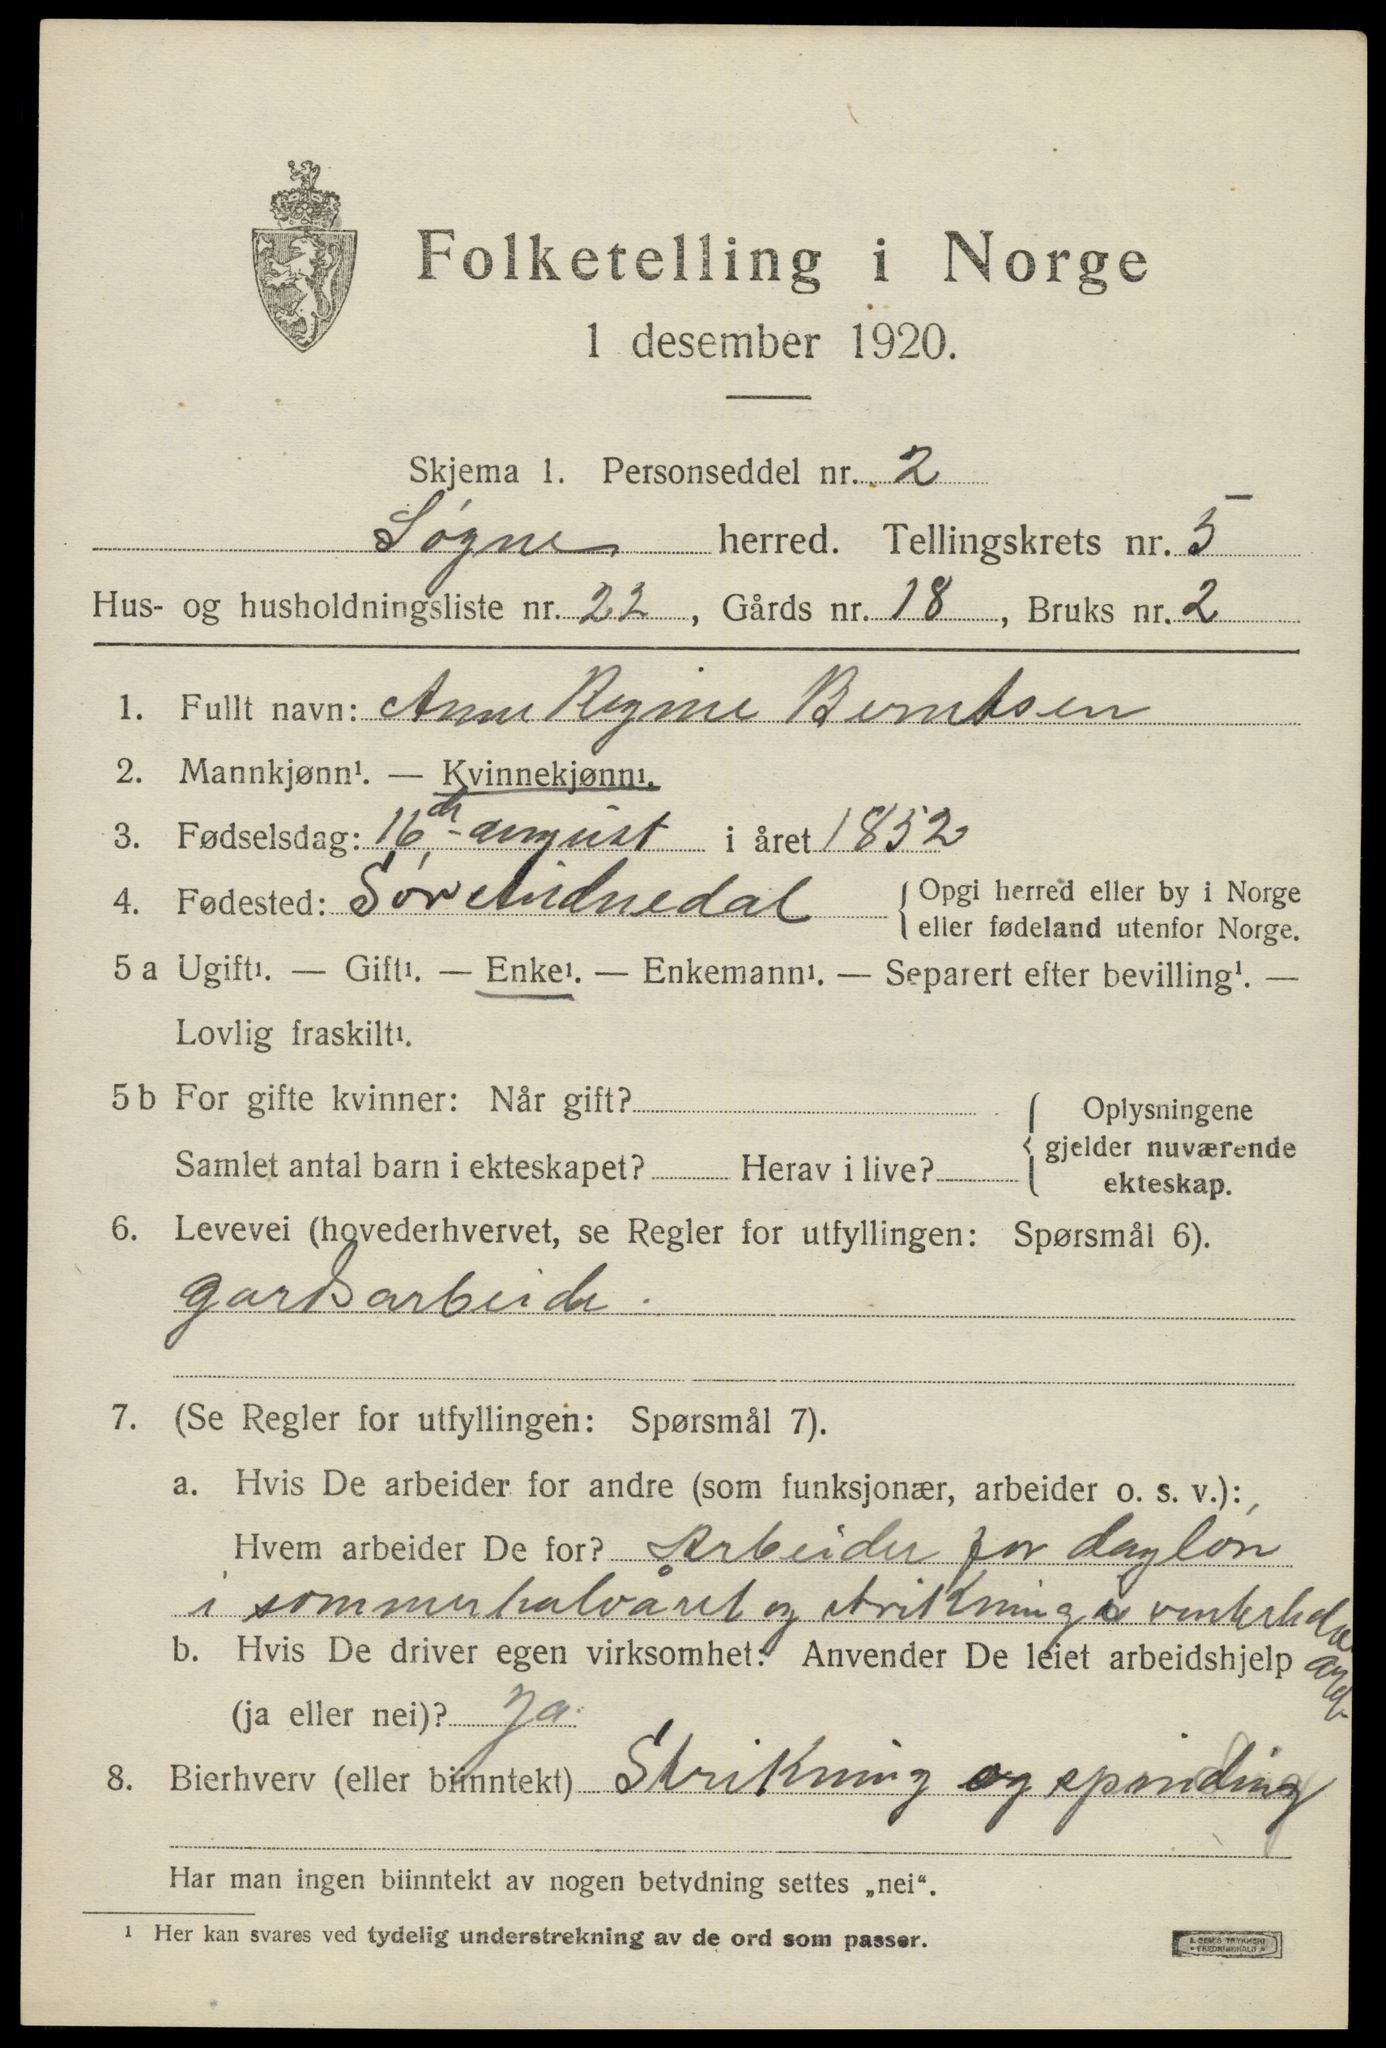 Folketelling i Norge
1 desember 1920.
Skjema 1. Personseddel nr. 2
Søgne herred. Tellingskrets nr. 5
Hus- og husholdningsliste nr. 22, Gårds nr. 18, Bruks nr. 2
1. Fullt navn: Anne Regine Berntsen
2. Mannkjønn¹. — Kvinnekjønn¹.
3. Fødselsdag: 16de august i året 1852
4. Fødested: Sør Audnedal { Opgi herred eller by i Norge
eller fødeland utenfor Norge.
5 a Ugift¹. — Gift¹. — Enke¹. — Enkemann¹. — Separert efter bevilling¹. —
Lovlig fraskilt¹.
5 b For gifte kvinner: Når gift?
Samlet antal barn i ekteskapet? Herav i live?
{ Oplysningene
gjelder nuværende
ekteskap.
6. Levevei (hovederhvervet, se Regler for utfyllingen: Spørsmål 6).
gardsarbeide.
7. (Se Regler for utfyllingen: Spørsmål 7).
a. Hvis De arbeider for andre (som funksjonær, arbeider o. s. v.):
Hvem arbeider De for? Arbeider for dagløn
i sommerhalvåret og strikning i vinterhalv
året.
b. Hvis De driver egen virksomhet: Anvender De leiet arbeidshjelp
(ja eller nei)? Ja.
8. Bierhverv (eller biinntekt) Strikning og spinding
Har man ingen biinntekt av nogen betydning settes „nei“.
¹ Her kan svares ved tydelig understrekning av de ord som passer.